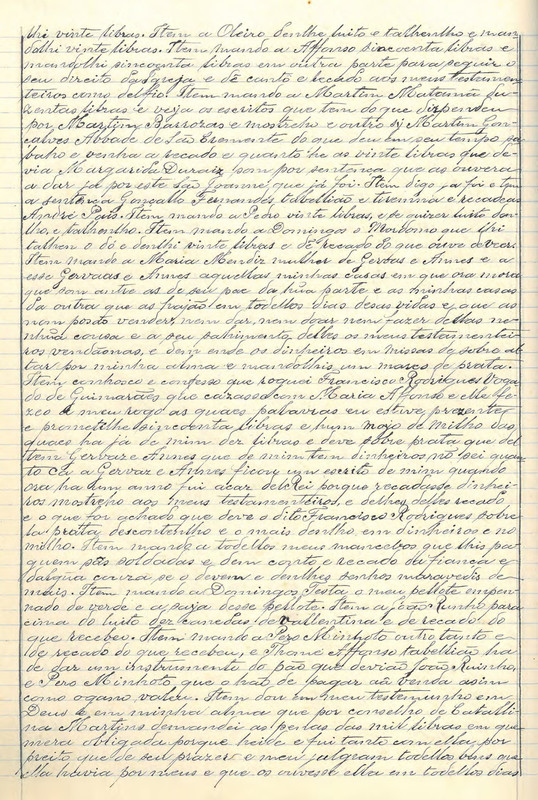 lhi vinte libras. Item a Oleiro Senlhe luito e talhenlho e man
dolhi vinte libras. Item mando a Affonso sincoenta libras e
mandolhi sincoenta libras em outra parte para seguir o
seu direito da Igreja e dê canto e recado aos meus testamen
teiros como delfio. Item mando a Martim Matanna du
zentas libras e veja os escritos que tem do que dispendeu
por Martim Barrozas e mostreho e outro sy Martim Gon
çalves Abbade de São Cremente do que deu em seu tempo
banho e venha a recado e quanto he as vinte libras que de
via Margarida Duraiz som por sentença que as ouvera
a dar já por este São Joanne que já foi. Item digo já foi e tem
a sentença Gonçallo Fernandes, tabellião e termina e recadeas
André Pais. Item mando a Pedro vinte libras, e se quizer luito dan
lho, e talhenlho. Item mando a Domingos o Mordomo que lhi
talhen o dó e denlhi vinte libras e dê recado do que ouve de veer.
Item mando a Maria Mendiz mulher de Gervas e Annes e a
esse Gervaas e Annes aquellas minhas casas em que ora mora
que som antre as de seu pae da hũa parte e as minhas casas
da outra que as hajão em todollos dias de sas vidas e que as
nom possão vender, nem dar, nem doar nem fazer dellas ne
nhũa cousa e a seu pahimento delles os meus testamentei
ros vendãomas, e dem ende os dinheiros em missas de sobre al
tar por minha alma e mandolhis um março de prata.
Item conhosco e confesso que roguei Francisco Rodrigues Voga
do de Guimarães que cazasse com Maria Affonso e elle fe
zeo a meu rogo as quaes palavras eu estive prezente
e prometilhe sincoenta libras e hum mojo de milho das
quaes ha já de mim dez libras e deve sobre prata que del
tem Gervaz e Annes que de mim tem dinheiros, nô sei quan
to ca a Gervaz e Annes ficou um escrito de mim quando
ora ha um anno fui acaz del Rei porque recadasse dinhei
ros mostreho aos meus testamenteiros, e delhes delles recado
e o que for achado que deve o dito Francisco Rodrigues sobre
la pratta, descontenlho e o mais denlho, em dinheiros e no
milho. Item mando a todollos meus mancebos que lhis pa
guem sas soldadas e dem conto e recado da fiança e
dalgũa couza se o devem e denlhes senhos maravedis de
mais. Item mando a Domingos Testa o meu pellote empen
nado de verde e a saja desse pellote. Item a João Runho para
cima do luito dez canedas de Vallentina e dê recado do
que recebeo. Item mando a Pero Minhoto outro tanto e
dê recado do que recebeu, e Thomé Affonso tabellião ha
de dar um instrumento do pão que devião João Ruinho,
e Pero Minhoto que o hão de pagar aã venda assim
como ogano valeu. Item dou em meu testemunho em
Deus e em minha alma que por conselho de Catalli
na Martins demandei as perlas das mil libras em que
mera obligada porque heide e fui tanto com ella por
preito que de seu prazer e meu julgeam todollos bens que
ella havia por meus e que os ouvesse ella em todollos dias